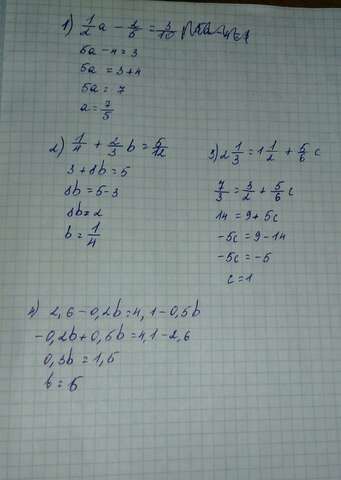 1) 1/2 a - 2/5 = 3/10
5a - 4 = 3
5a = 3 + 4
5a = 7
a = 7/5
2) 1/4 + 2/3 b = 5/12
3 + 8b = 5
8b = 5 - 3
8b = 2
b = 1/4
3) 2 1/3 = 1 1/2 + 5/6 c
7/3 = 3/2 + 5/6 c
14 = 9 + 5c
-5c = 9 - 14
-5c = -5
c = 1
4) 2,6 - 0,2b = 4,1 - 0,5b
-0,2b + 0,5b = 4,1 - 2,6
0,3b = 1,5
b = 5